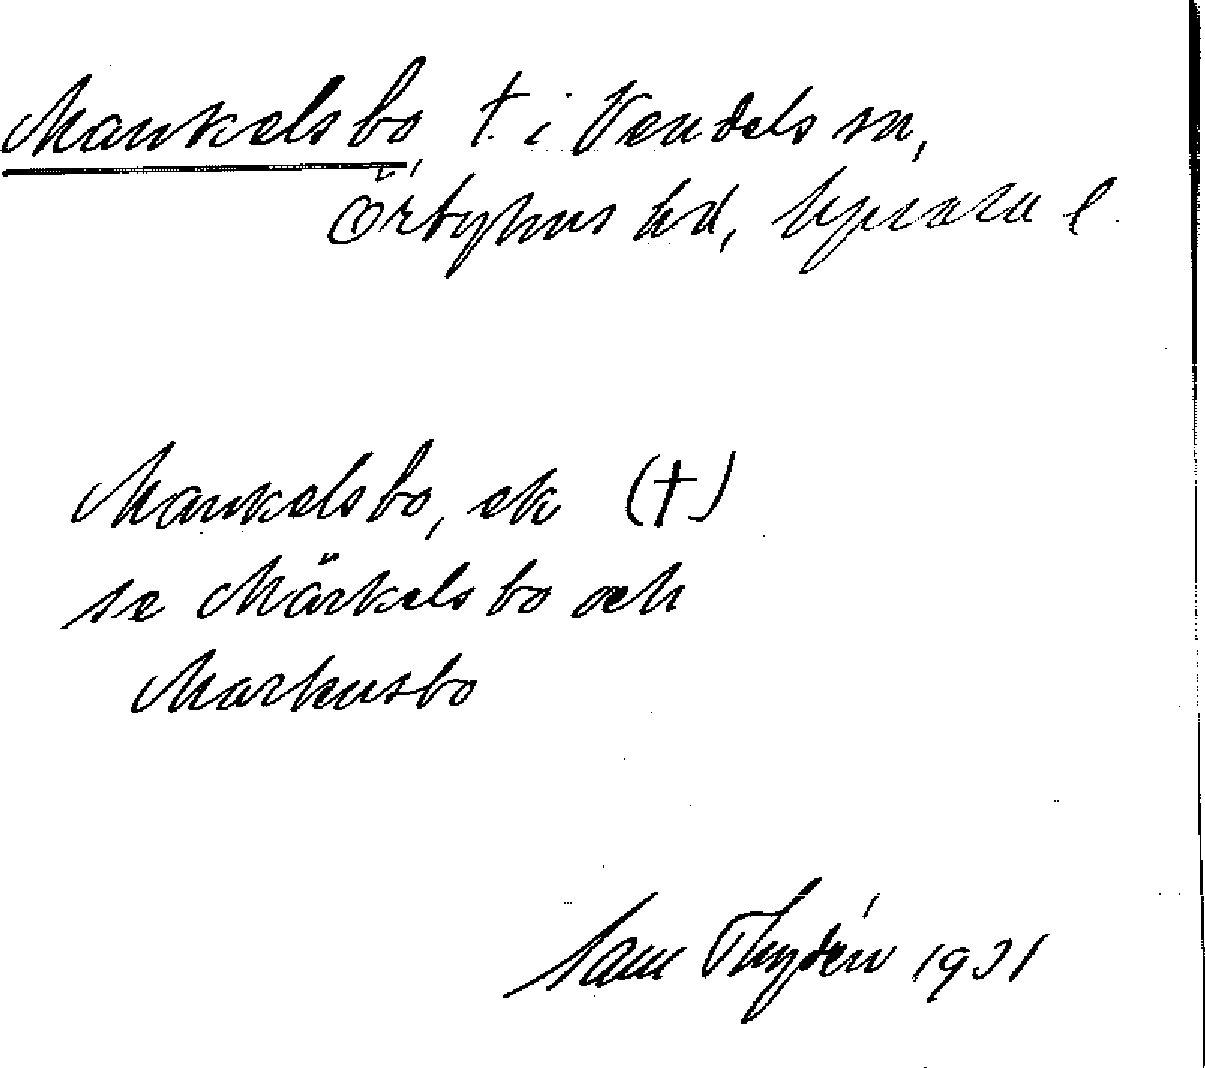 Mankelsbo, † i Vendels sn,
Örbyhus hd, Uppsala l.
Mankelsbo, ek (†)
se Märkelsbo och
Markusbo
Sam Thydén 1931